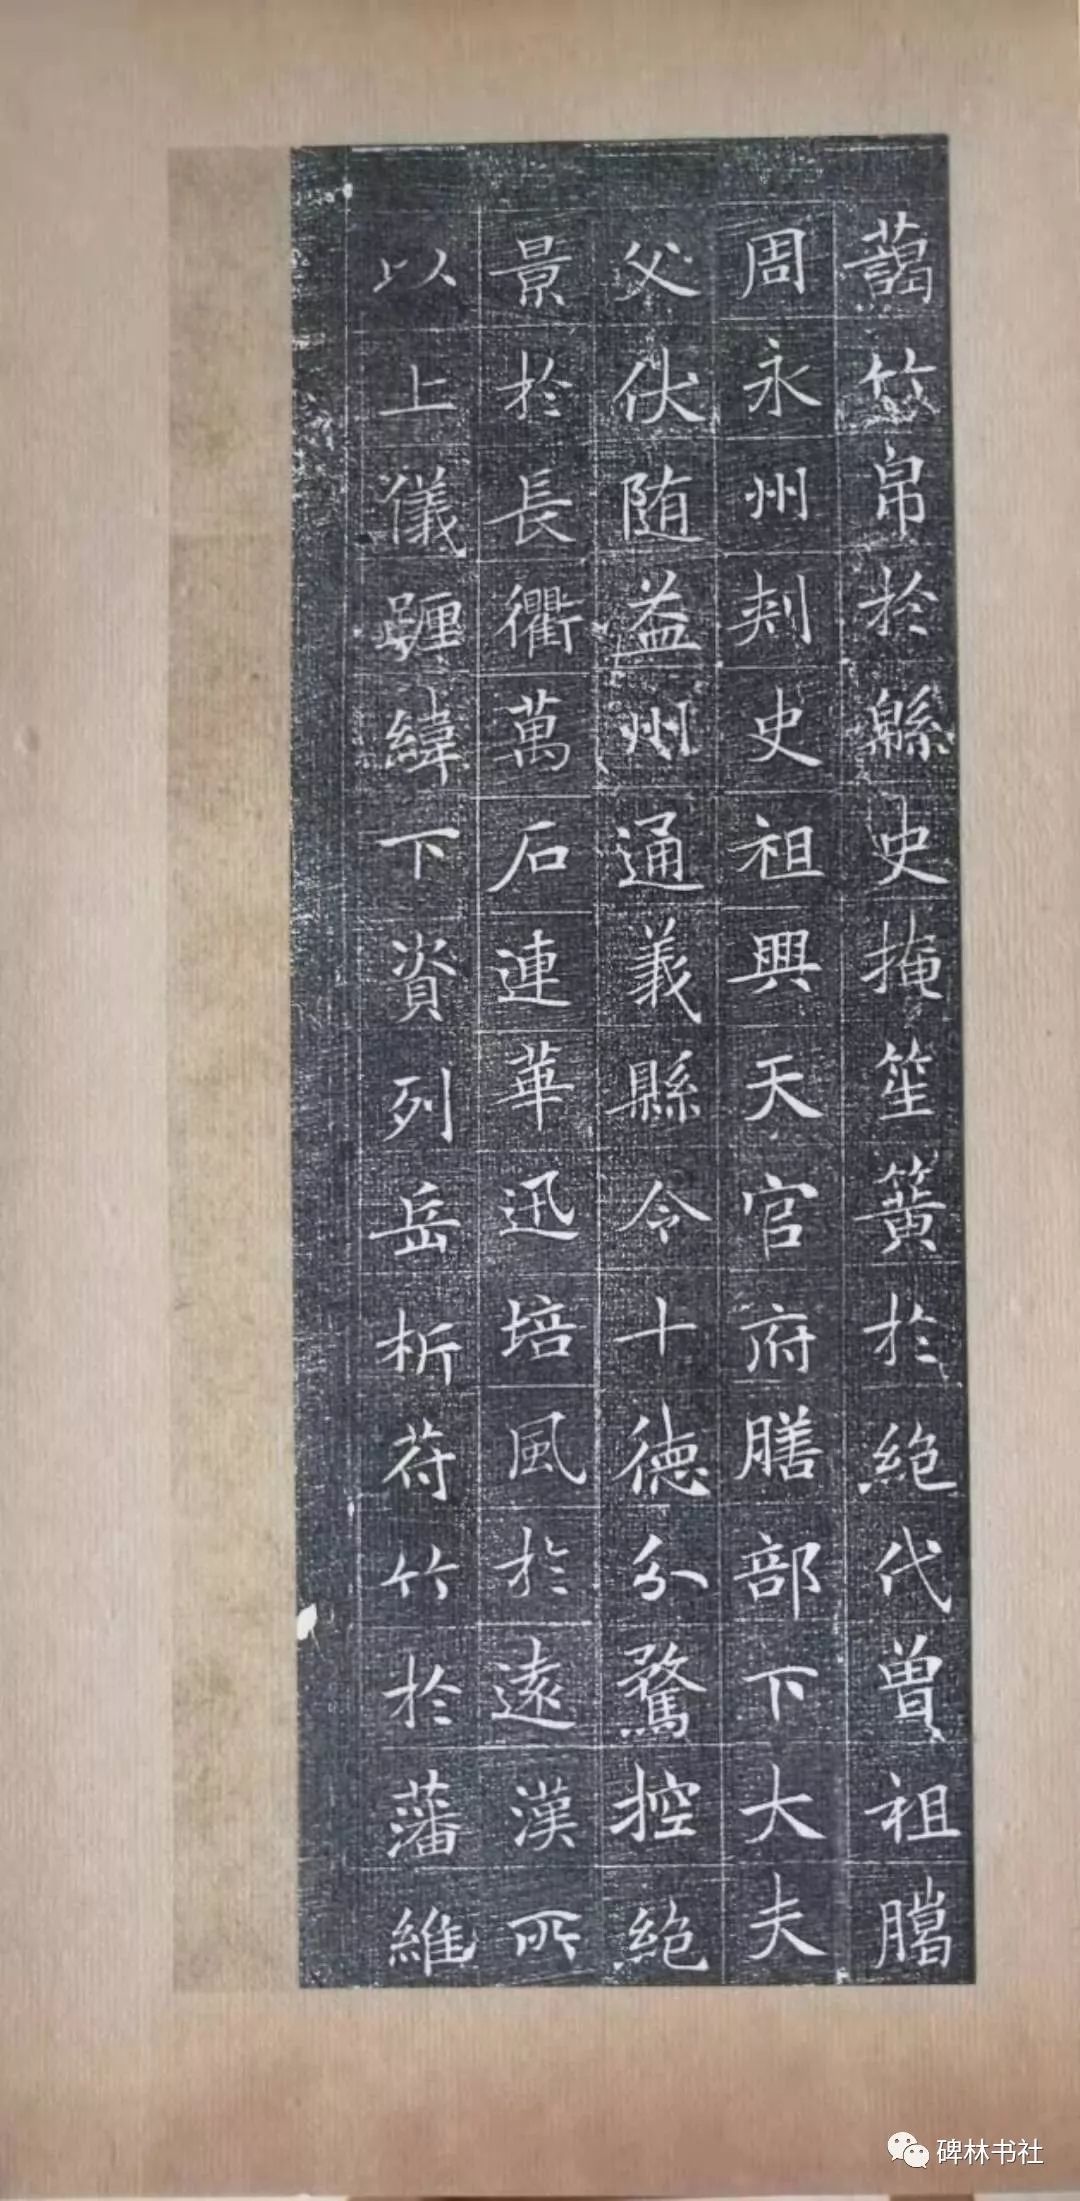 藹竹帛於緜史掩笙簧於絶代曽祖騰
周永州刾史祖興天官府膳部下大夫
父伏随益州通義縣令十德分騖控絶
景於長衢萬石連華迅培風於遠漢所
以上儀躔緯下資列岳析苻竹於藩維
碑林书社